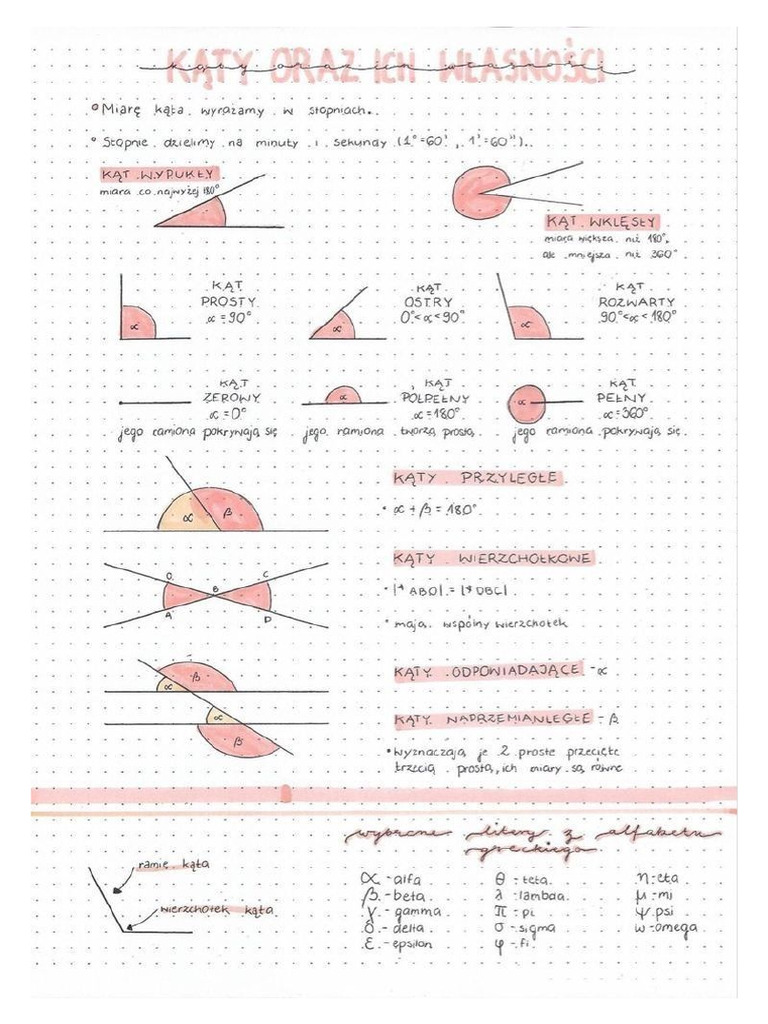 KĄTY ORAZ ICH WŁASNOŚCI
kąty oraz ich własności
Miarę kąta wyrażamy w stopniach.
Stopnie dzielimy na minuty i sekundy (1°=60', 1'=60'').
KĄT WYPUKŁY
miara co najwyżej 180°
KĄT WKLĘSŁY
miara większa niż 180°,
ale mniejsza niż 360°
α
KĄT
PROSTY
α = 90°
α
KĄT
OSTRY
0°<α<90°
α
KĄT
ROZWARTY
90°<α<180°
KĄT
ZEROWY
α=0°
jego ramiona pokrywają się
α
KĄT
PÓŁPEŁNY
α=180°
jego ramiona tworzą prostą
α
KĄT
PEŁNY
α=360°
jego ramiona pokrywają się
α β
KĄTY PRZYLEGŁE
• α + β = 180°
O C
B
A D
KĄTY WIERZCHOŁKOWE
• |∢ABO| = |∢DBC|
• mają wspólny wierzchołek
β
α
α
β
KĄTY ODPOWIADAJĄCE - α
KĄTY NAPRZEMIANLEGŁE - β
• wyznaczają je 2 proste przecięte
trzecią prostą, ich miary są równe
ramię kąta
wierzchołek kąta
wybrane litery z alfabetu
greckiego
α - alfa
β - beta
γ - gamma
δ - delta
ε - epsilon
θ - teta
λ - lambda
π - pi
σ - sigma
φ - fi
η - eta
μ - mi
ψ psi
ω - omega